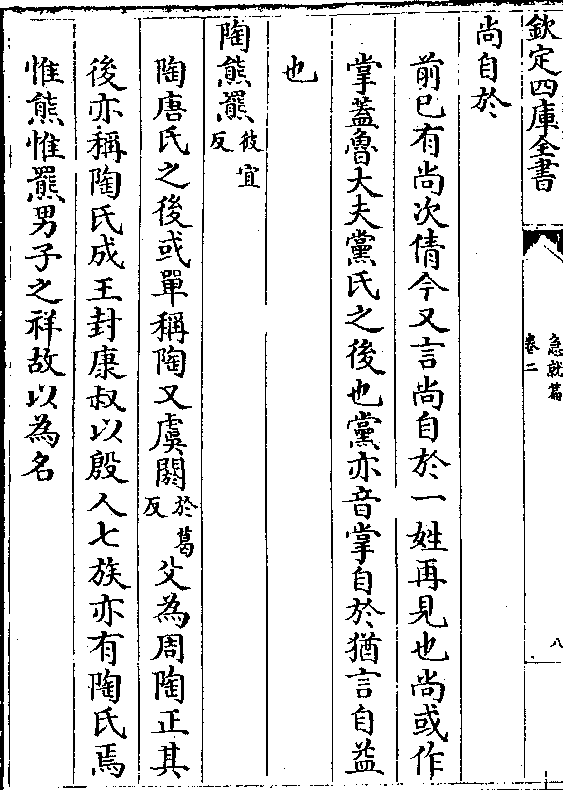 欽定四庫全書
急就篇
卷二
八
尚自於
前已有尚次倩今又言尚自於一姓再見也尚或作
掌蓋魯大夫黨氏之後也黨亦音掌自於猶言自益
也
陶熊羆彼宜反
陶唐氏之後或單稱陶又虞閼於葛反父為周陶正其
後亦稱陶氏成王封康叔以殷人七族亦有陶氏焉
惟熊惟羆男子之祥故以為名